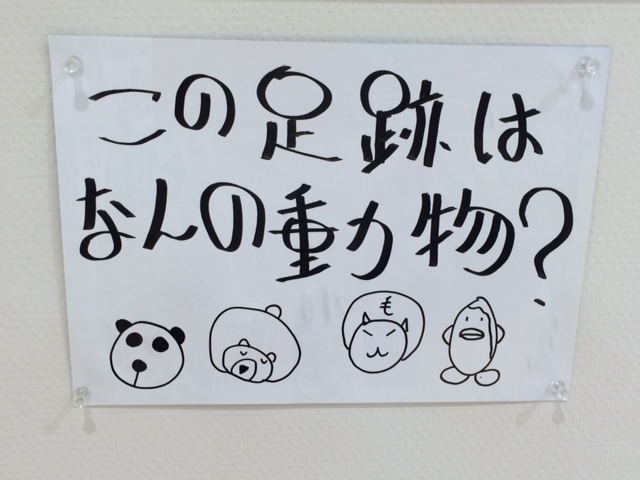 この足跡は
なんの動物?
も